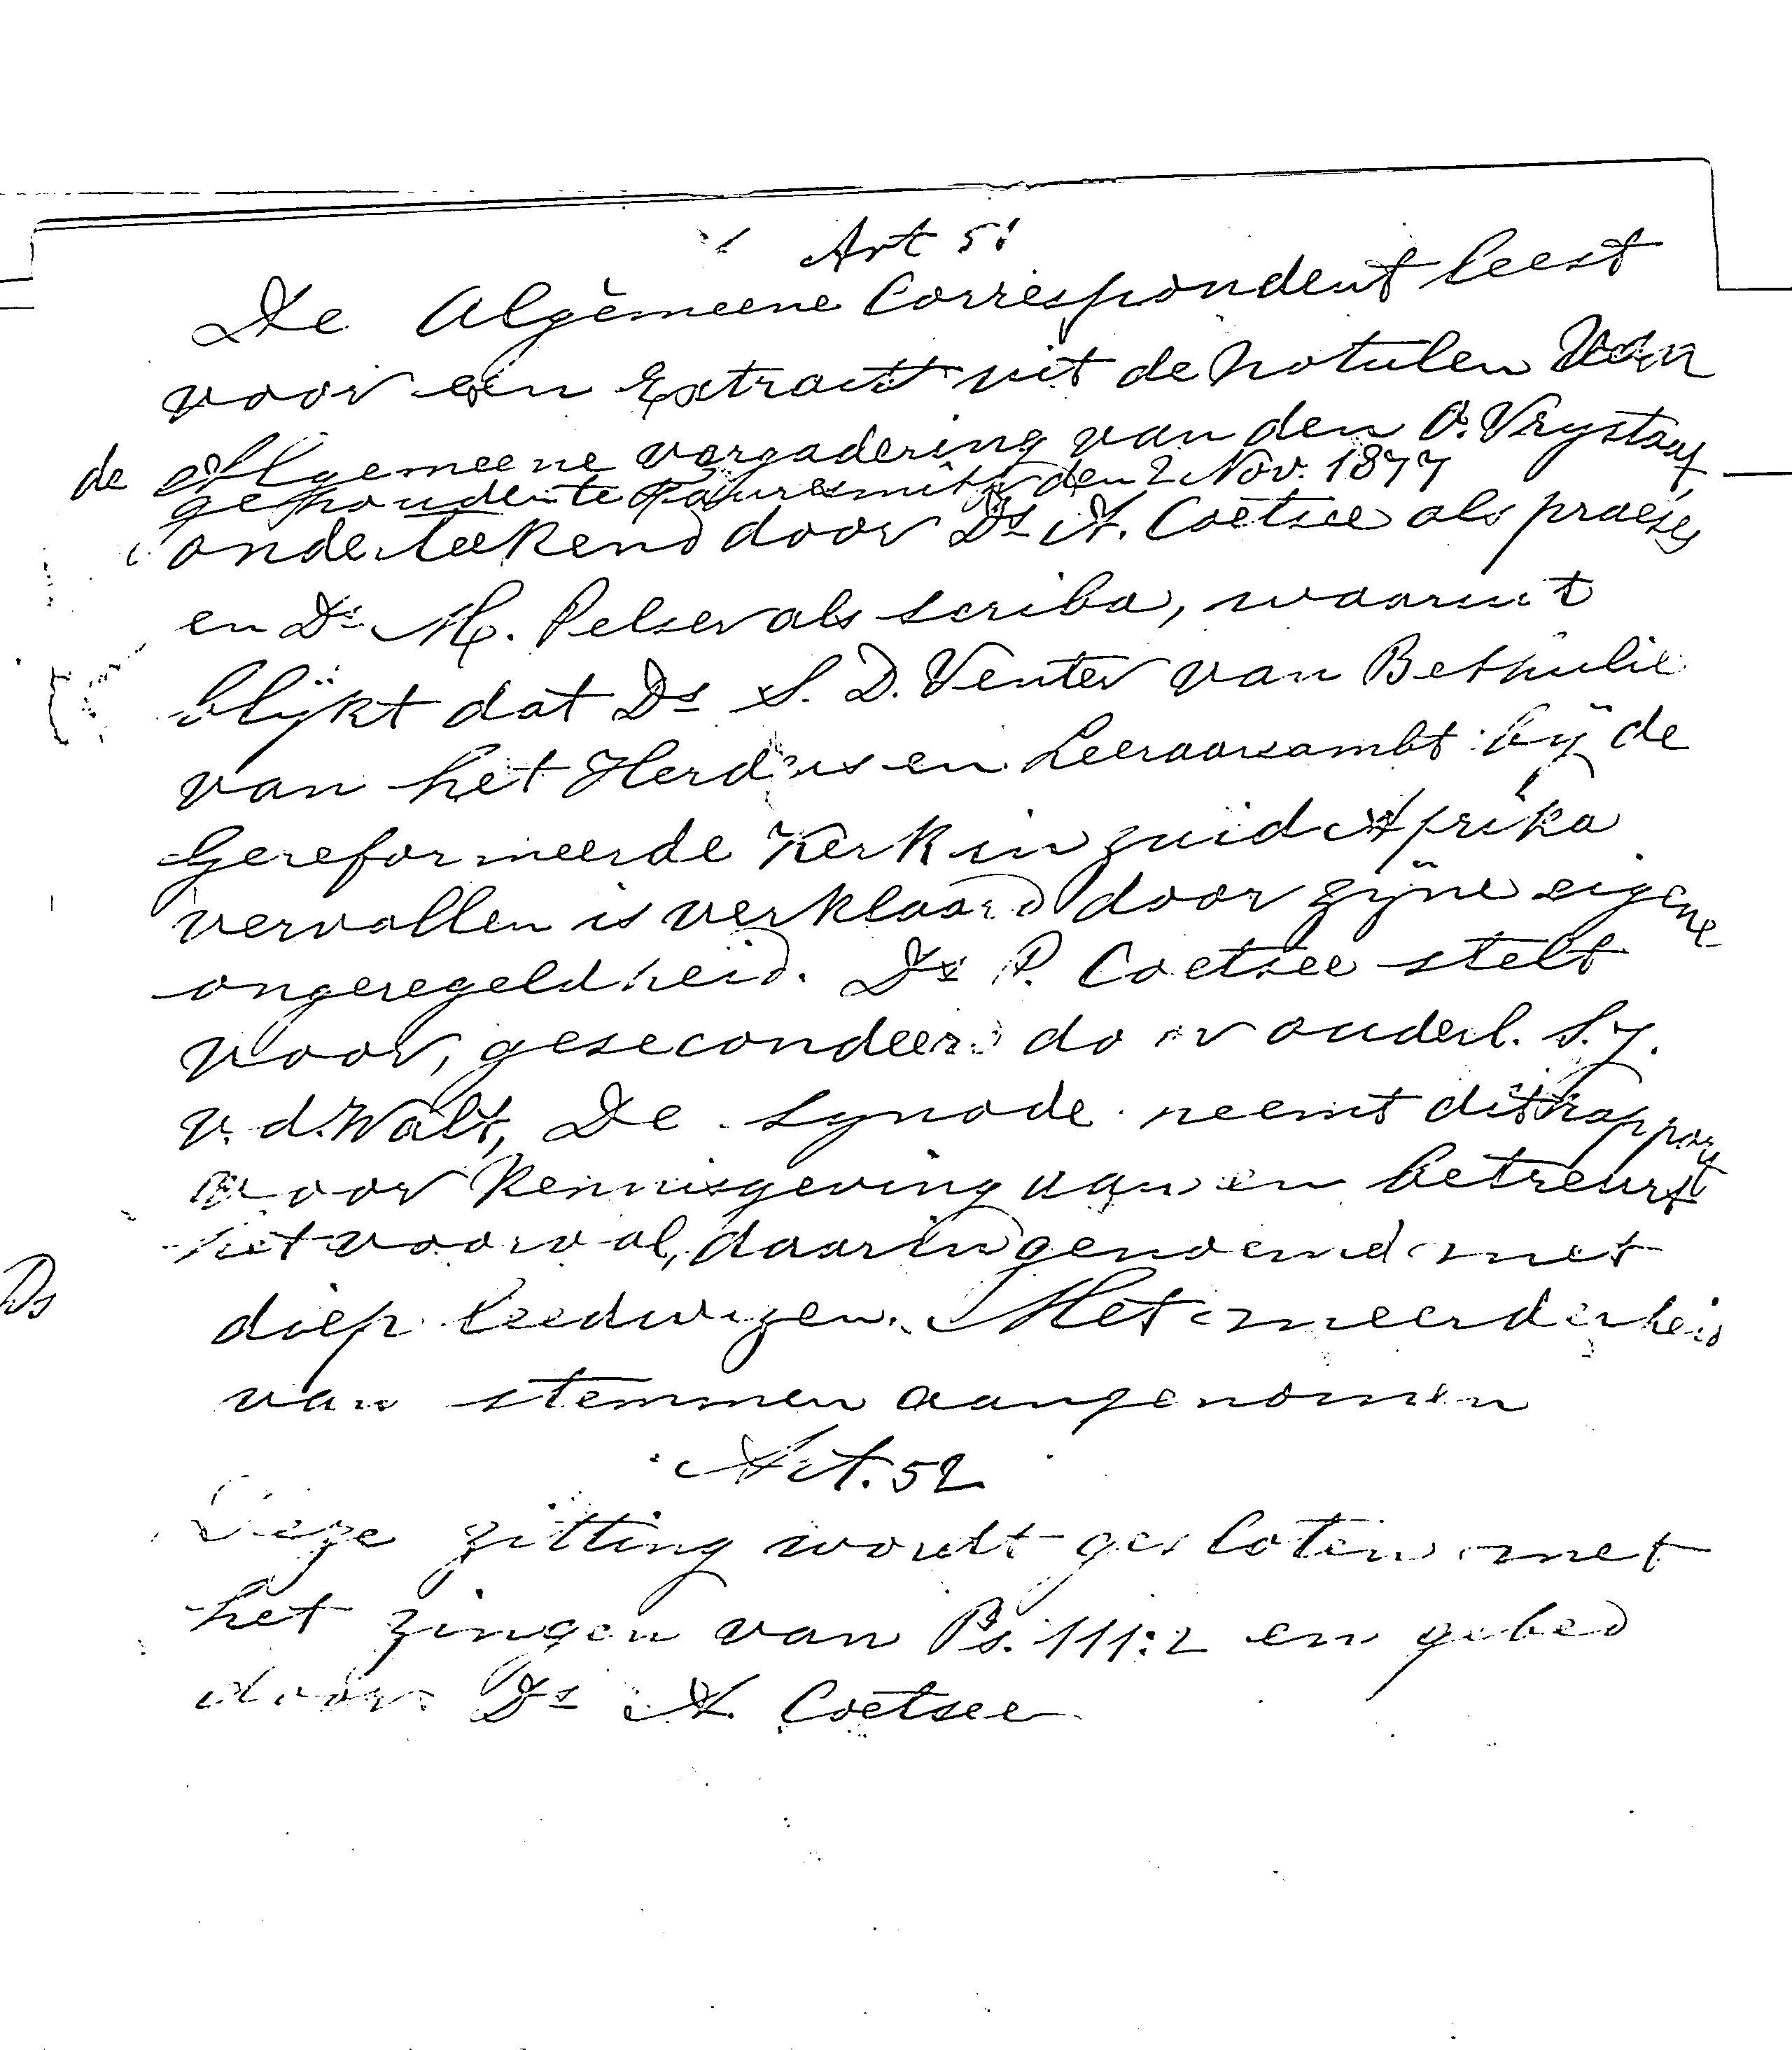 Art 51
De Algemeene Correspondent leest
voor een Extract uit de Notulen van
de Algemeene vergadering van den O. Vrystaat
gehouden te Fauresmith den 2 Nov. 1877
onderteekend door Ds A. Coetsee als praeses
en Ds M. Pelser als scriba, waaruit
blijkt dat Ds S. D. Venter van Bethulie
van het Herders en Leeraarsambt bij de
Gereformeerde Kerk in Zuid Afrika
vervallen is verklaard door zijne eigene
ongeregeldheid. Ds P. Coetsee stelt
voor, gesecondeerd door ouderl. S. J.
v. d. Walt, De Synode neemt dit rapport
voor kennisgeving aan en betreurt
het voorval, daarin genoemd met
diep leedwezen. Met meerderheid
van stemmen aangenomen
Art. 52
Deze zitting wordt gesloten met
het zingen van Ps. 111:2 en gebed
door Ds A. Coetsee
Ds